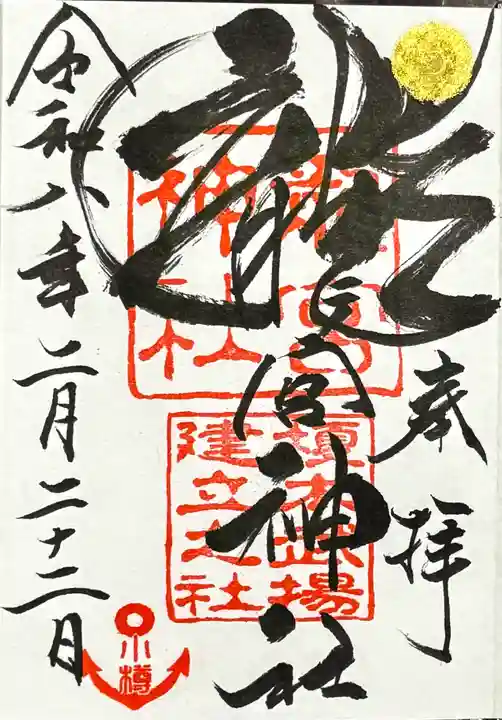 奉拝
龍宮神社
令和八年二月二十二日
龍宮
神社
榎本武揚
建立之社
小樽